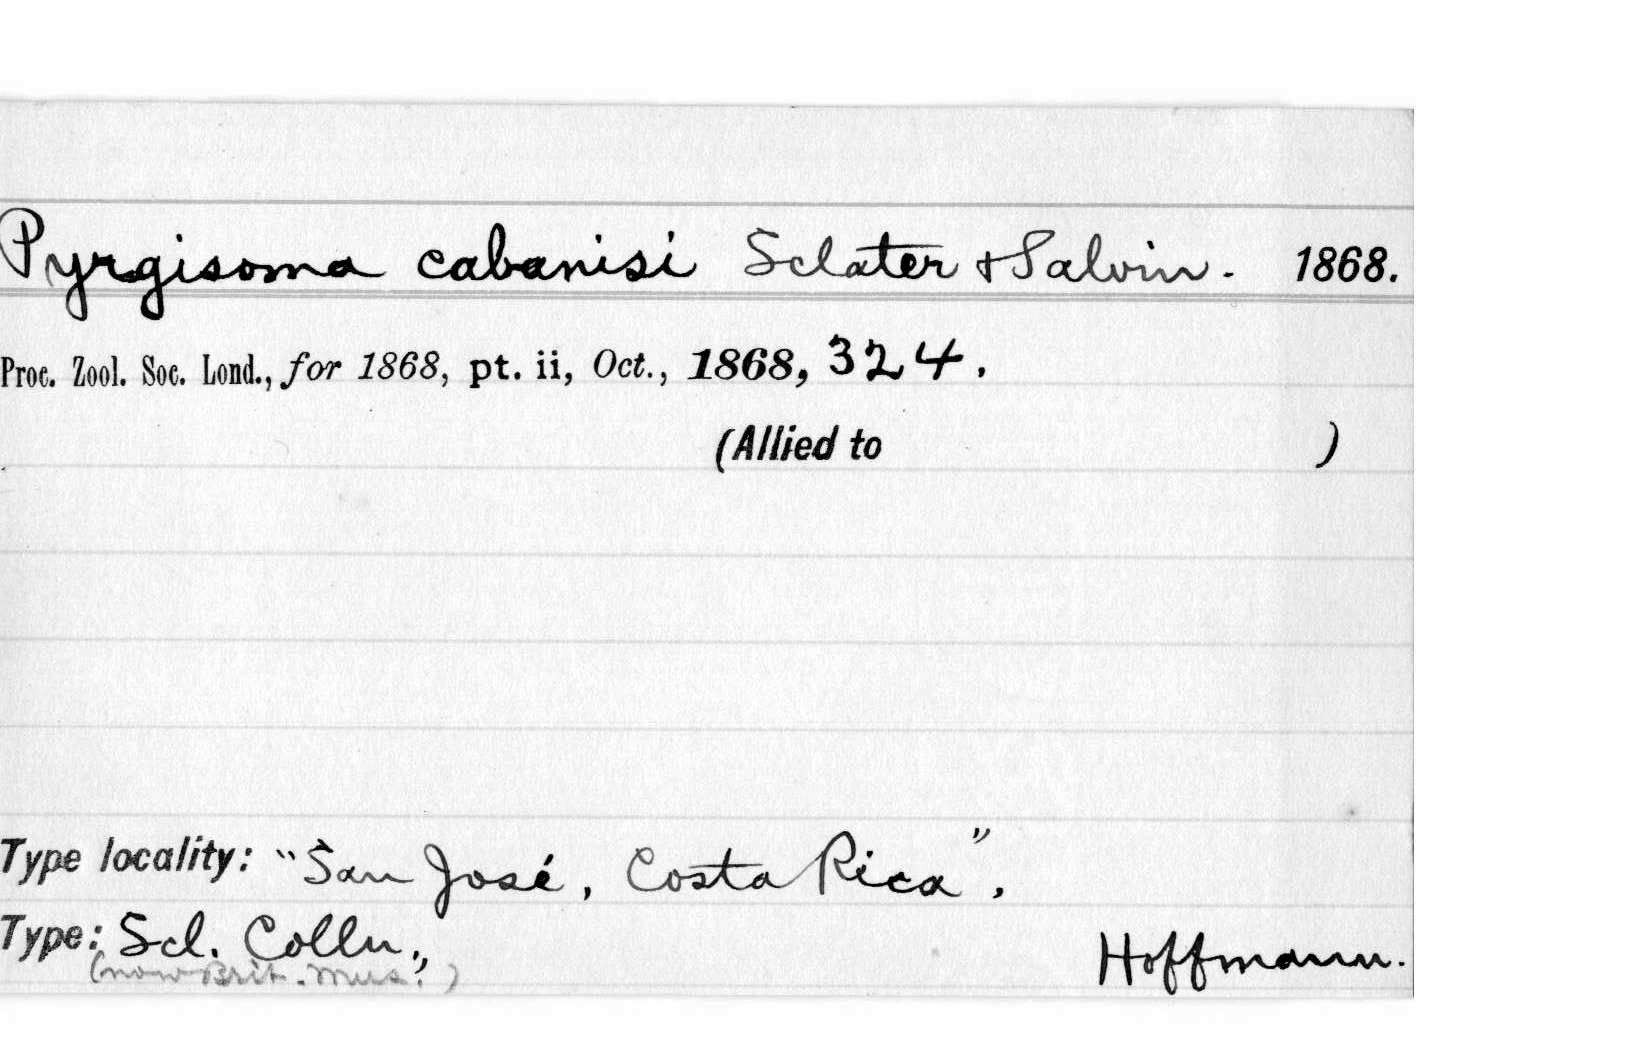 Pyrgisoma cabanisi Sclater & Salvin. 1868.
Proc. Zool. Soc. Lond., for 1868, pt. ii, Oct., 1868, 324.
(Allied to )
Type locality: "San José, Costa Rica",
Type: Scl. Colln., Hoffmann.
(now Brit. Mus.?)